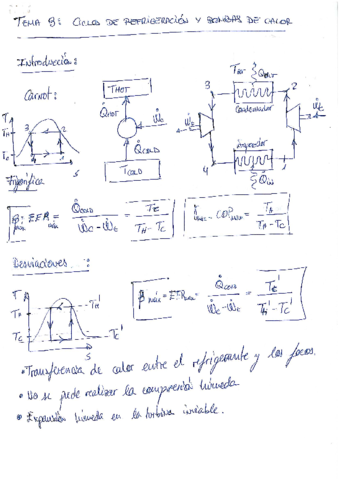 TEMA 8: CICLOS DE REFRIGERACIÓN Y BOMBAS DE CALOR
Introducción:
Carnot:
T
T_H
T_C
3
2
4
1
S
T_HOT
Q̇_HOT
Ẇ_c
Q̇_COLD
T_COLD
Q̇_out
3
2
Condensador
Ẇ_t
Ẇ_c
4
1
Q̇_in
Frigorífica
β_máx = EER = Q̇_COLD / (Ẇ_c - Ẇ_t) = T_C / (T_H - T_C)
COP = T_H / (T_H - T_C)
Desviaciones:
T
T_H
T_C
T_H'
T_C'
S
β máx = EER = Q̇_COLD / (Ẇ_c - Ẇ_t) = T_C' / (T_H' - T_C')
• Transferencia de calor entre el refrigerante y los focos.
• No se puede realizar la compresión húmeda.
• Expansión húmeda en la turbina inviable.